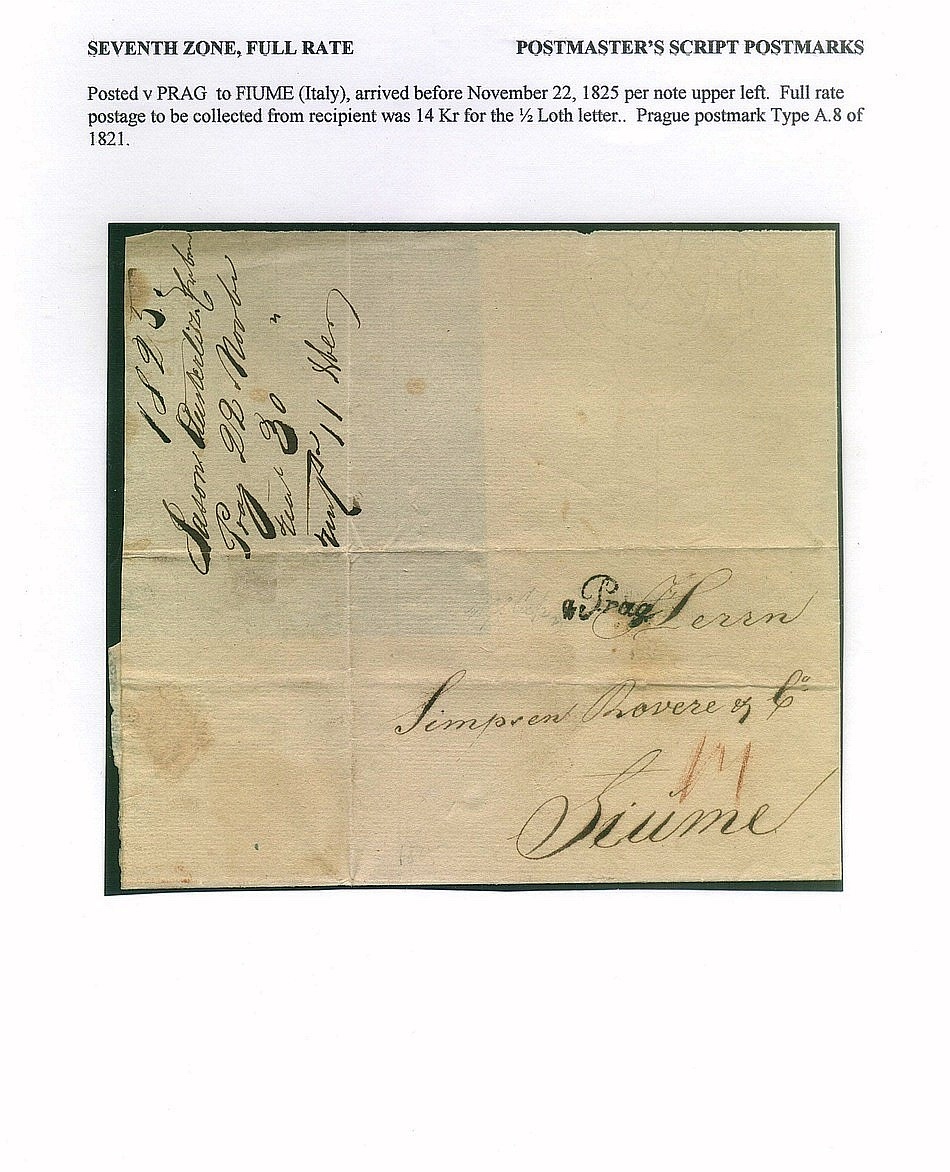 SEVENTH ZONE, FULL RATE POSTMASTER'S SCRIPT POSTMARKS
Posted v PRAG to FIUME (Italy), arrived before November 22, 1825 per note upper left. Full rate
postage to be collected from recipient was 14 Kr for the ½ Loth letter.. Prague postmark Type A.8 of
1821.
1825
Prag 22 Novbr
30
11
v. Prag
Herrn
Simpson Rovere & Co
14
Fiume